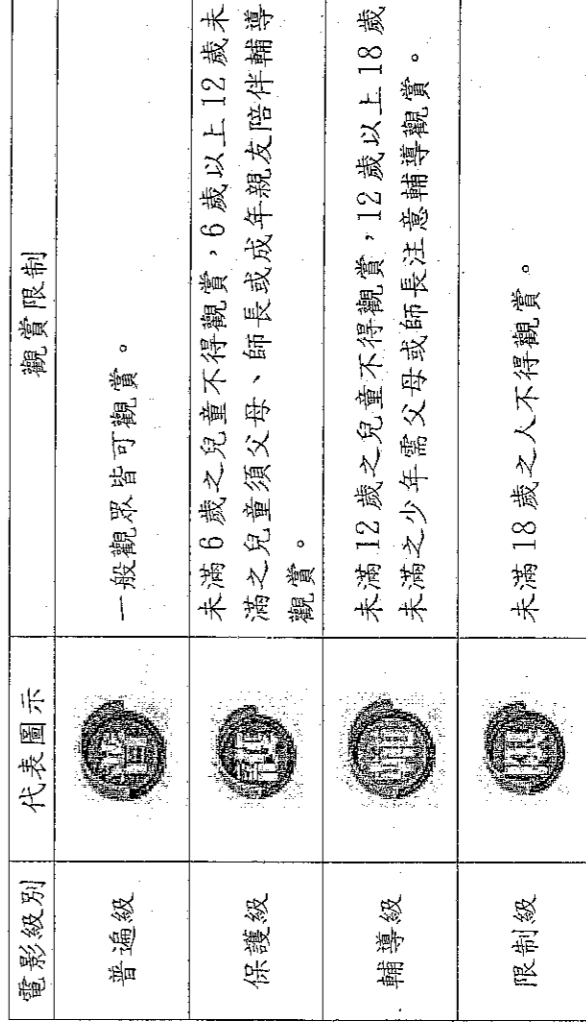 電影級別 代表圖示 觀賞限制
普遍級 普 一般觀眾皆可觀賞。
保護級 護 未滿 6 歲之兒童不得觀賞，6 歲以上 12 歲未
滿之兒童須父母、師長或成年親友陪伴輔導
觀賞。
輔導級 輔 未滿 12 歲之兒童不得觀賞，12 歲以上 18 歲
未滿之少年需父母或師長注意輔導觀賞。
限制級 限 未滿 18 歲之人不得觀賞。